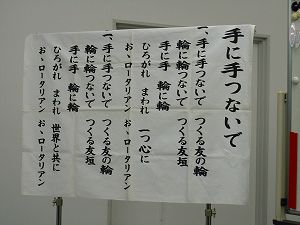 手に手つないで
一、手に手つないで つくる友の輪
輪に輪つないで つくる友垣
手に手 輪に輪
ひろがれ まわれ 一つ心に
おゝロータリアン おゝロータリアン
一、手に手つないで つくる友の輪
輪に輪つないで つくる友垣
手に手 輪に輪
ひろがれ まわれ 世界と共に
おゝロータリアン おゝロータリアン